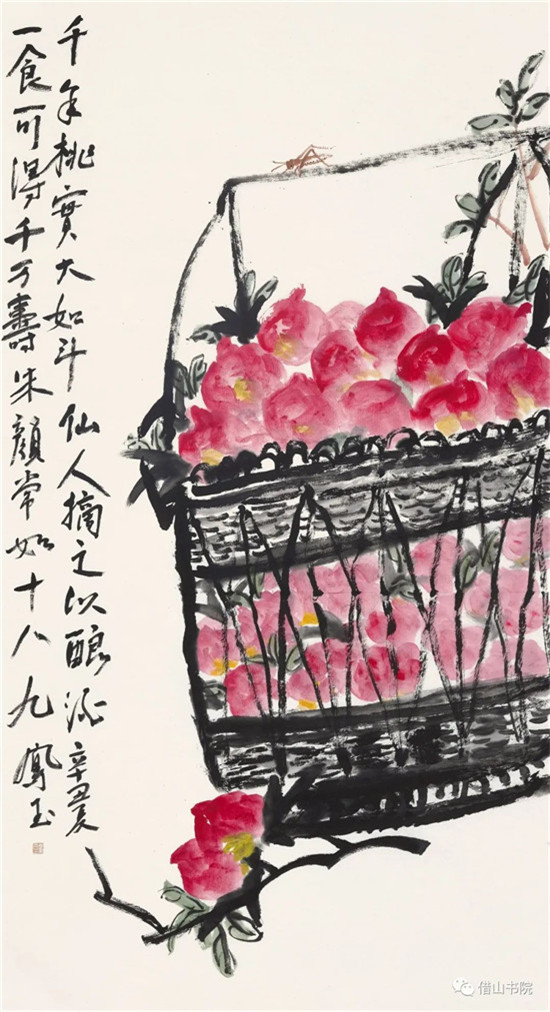 千年桃實大如斗仙人摘之以釀酒辛丑夏
一食可得千万壽朱顏常如十八九鳳玉
借山书院